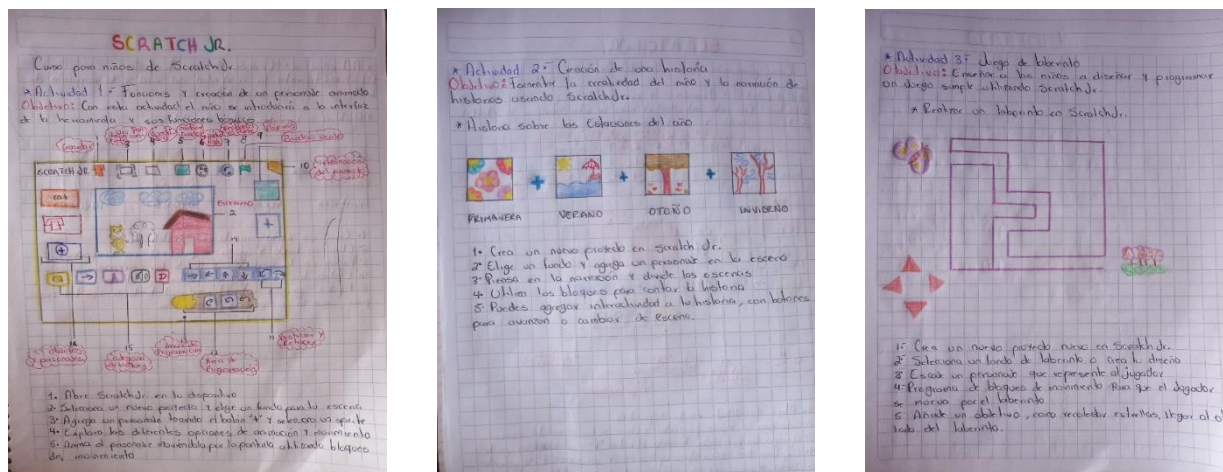 SCRATCH JR.
Curso para niños de Scratch Jr.
* Actividad 1:- Funciones y creación de un personaje animado
Objetivo: Con esta actividad el niño se introducirá a la interfaz
de la herramienta y sus funciones básicas.
3 4 5 6 7 8 9
10
SCRATCH JR
cat
ESCENARIO
2
11
12
13
14
15
Área de
Programación
1. Abre ScratchJr. en tu dispositivo
2. Selecciona un nuevo proyecto y elige un fondo para tu escena
3. Agrega un personaje tocando el botón "+" y selecciona un sprite
4. Explora las diferentes opciones de animación y movimiento
5. Anima al personaje moviéndolo por la pantalla utilizando bloques
de movimiento
* Actividad 2:- Creación de una historia
Objetivo: Fomentar la creatividad del niño y la narración de
historias usando Scratch Jr.
* Historia sobre las Estaciones del año
+ + +
PRIMAVERA VERANO OTOÑO INVIERNO
1. Crea un nuevo proyecto en Scratch Jr.
2. Elige un fondo y agrega un personaje en la escena
3. Piensa en la narración y divide las escenas
4. Utiliza los bloques para contar la historia
5. Puedes agregar interactividad a tu historia, con botones
para avanzar o cambiar de escena.
* Actividad 3:- Juego de laberinto
Objetivo: Enseñar a los niños a diseñar y programar
un juego simple utilizando Scratch Jr.
* Realizar un laberinto en Scratch Jr.
1- Crea un nuevo proyecto nuevo en Scratch Jr.
2- Selecciona un fondo de laberinto o crea tu diseño
3- Escoge un personaje que represente al jugador
4- Programa de bloques de movimiento para que el jugador
se mueva por el laberinto
5. Añade un objetivo, como recolectar estrellas, llegar al o
lado del laberinto.